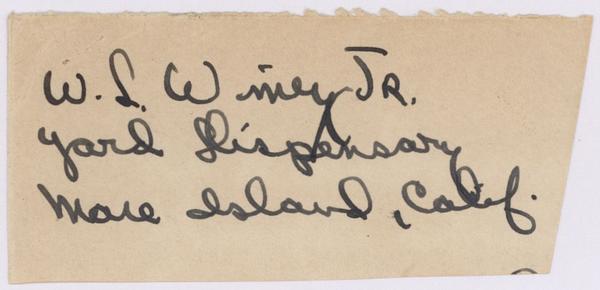 W. L. Winey Jr.
Yard Dispensary
Mare Island, Calif.